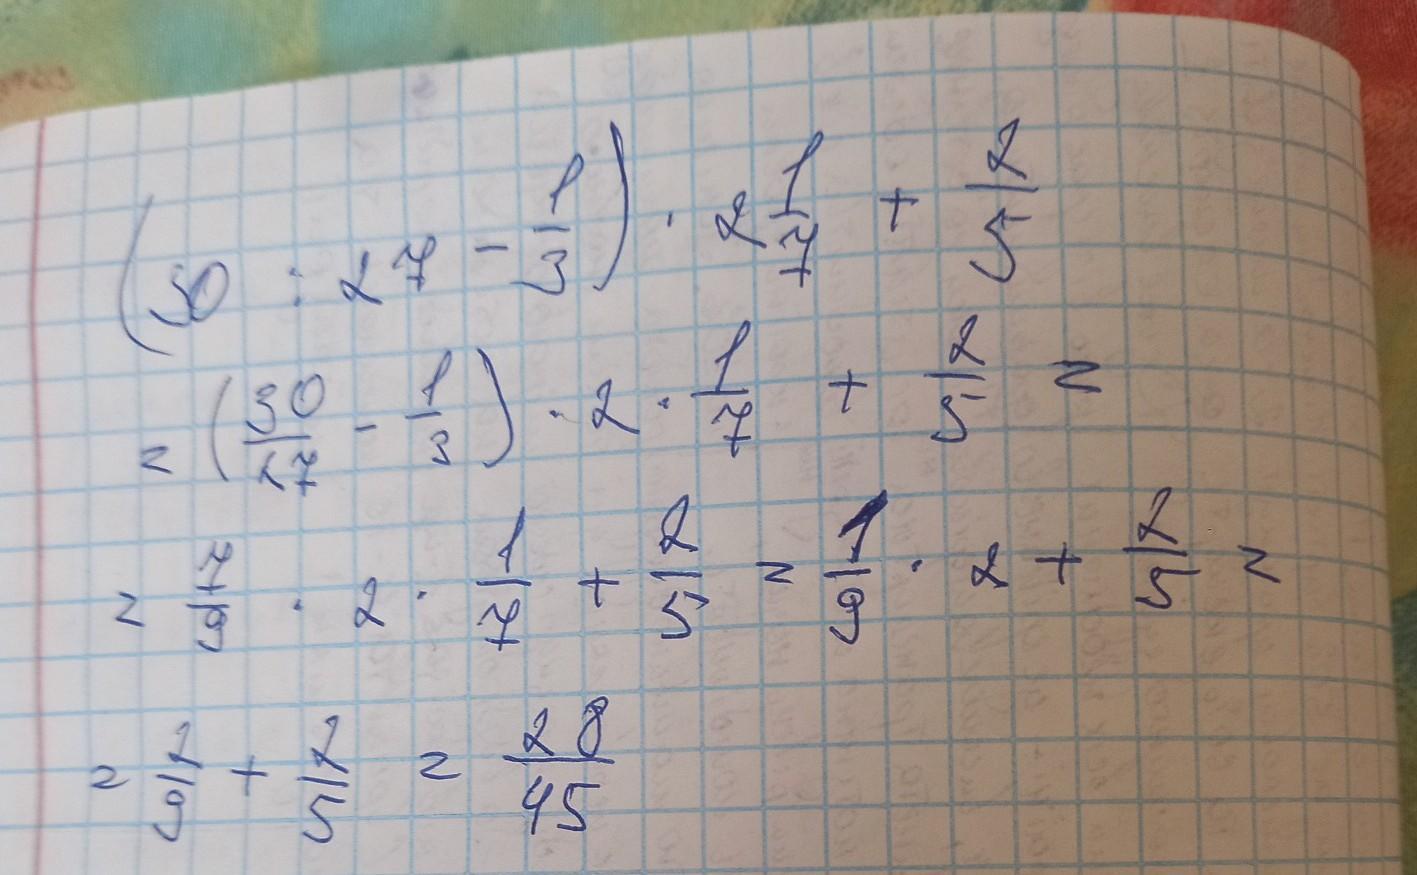 (30 : 27 - 1/3) · 2 1/7 + 2/5
= (30/27 - 1/3) · 2 · 1/7 + 2/5 =
= 7/9 · 2 · 1/7 + 2/5 = 1/9 · 2 + 2/5 =
= 2/9 + 2/5 = 28/45